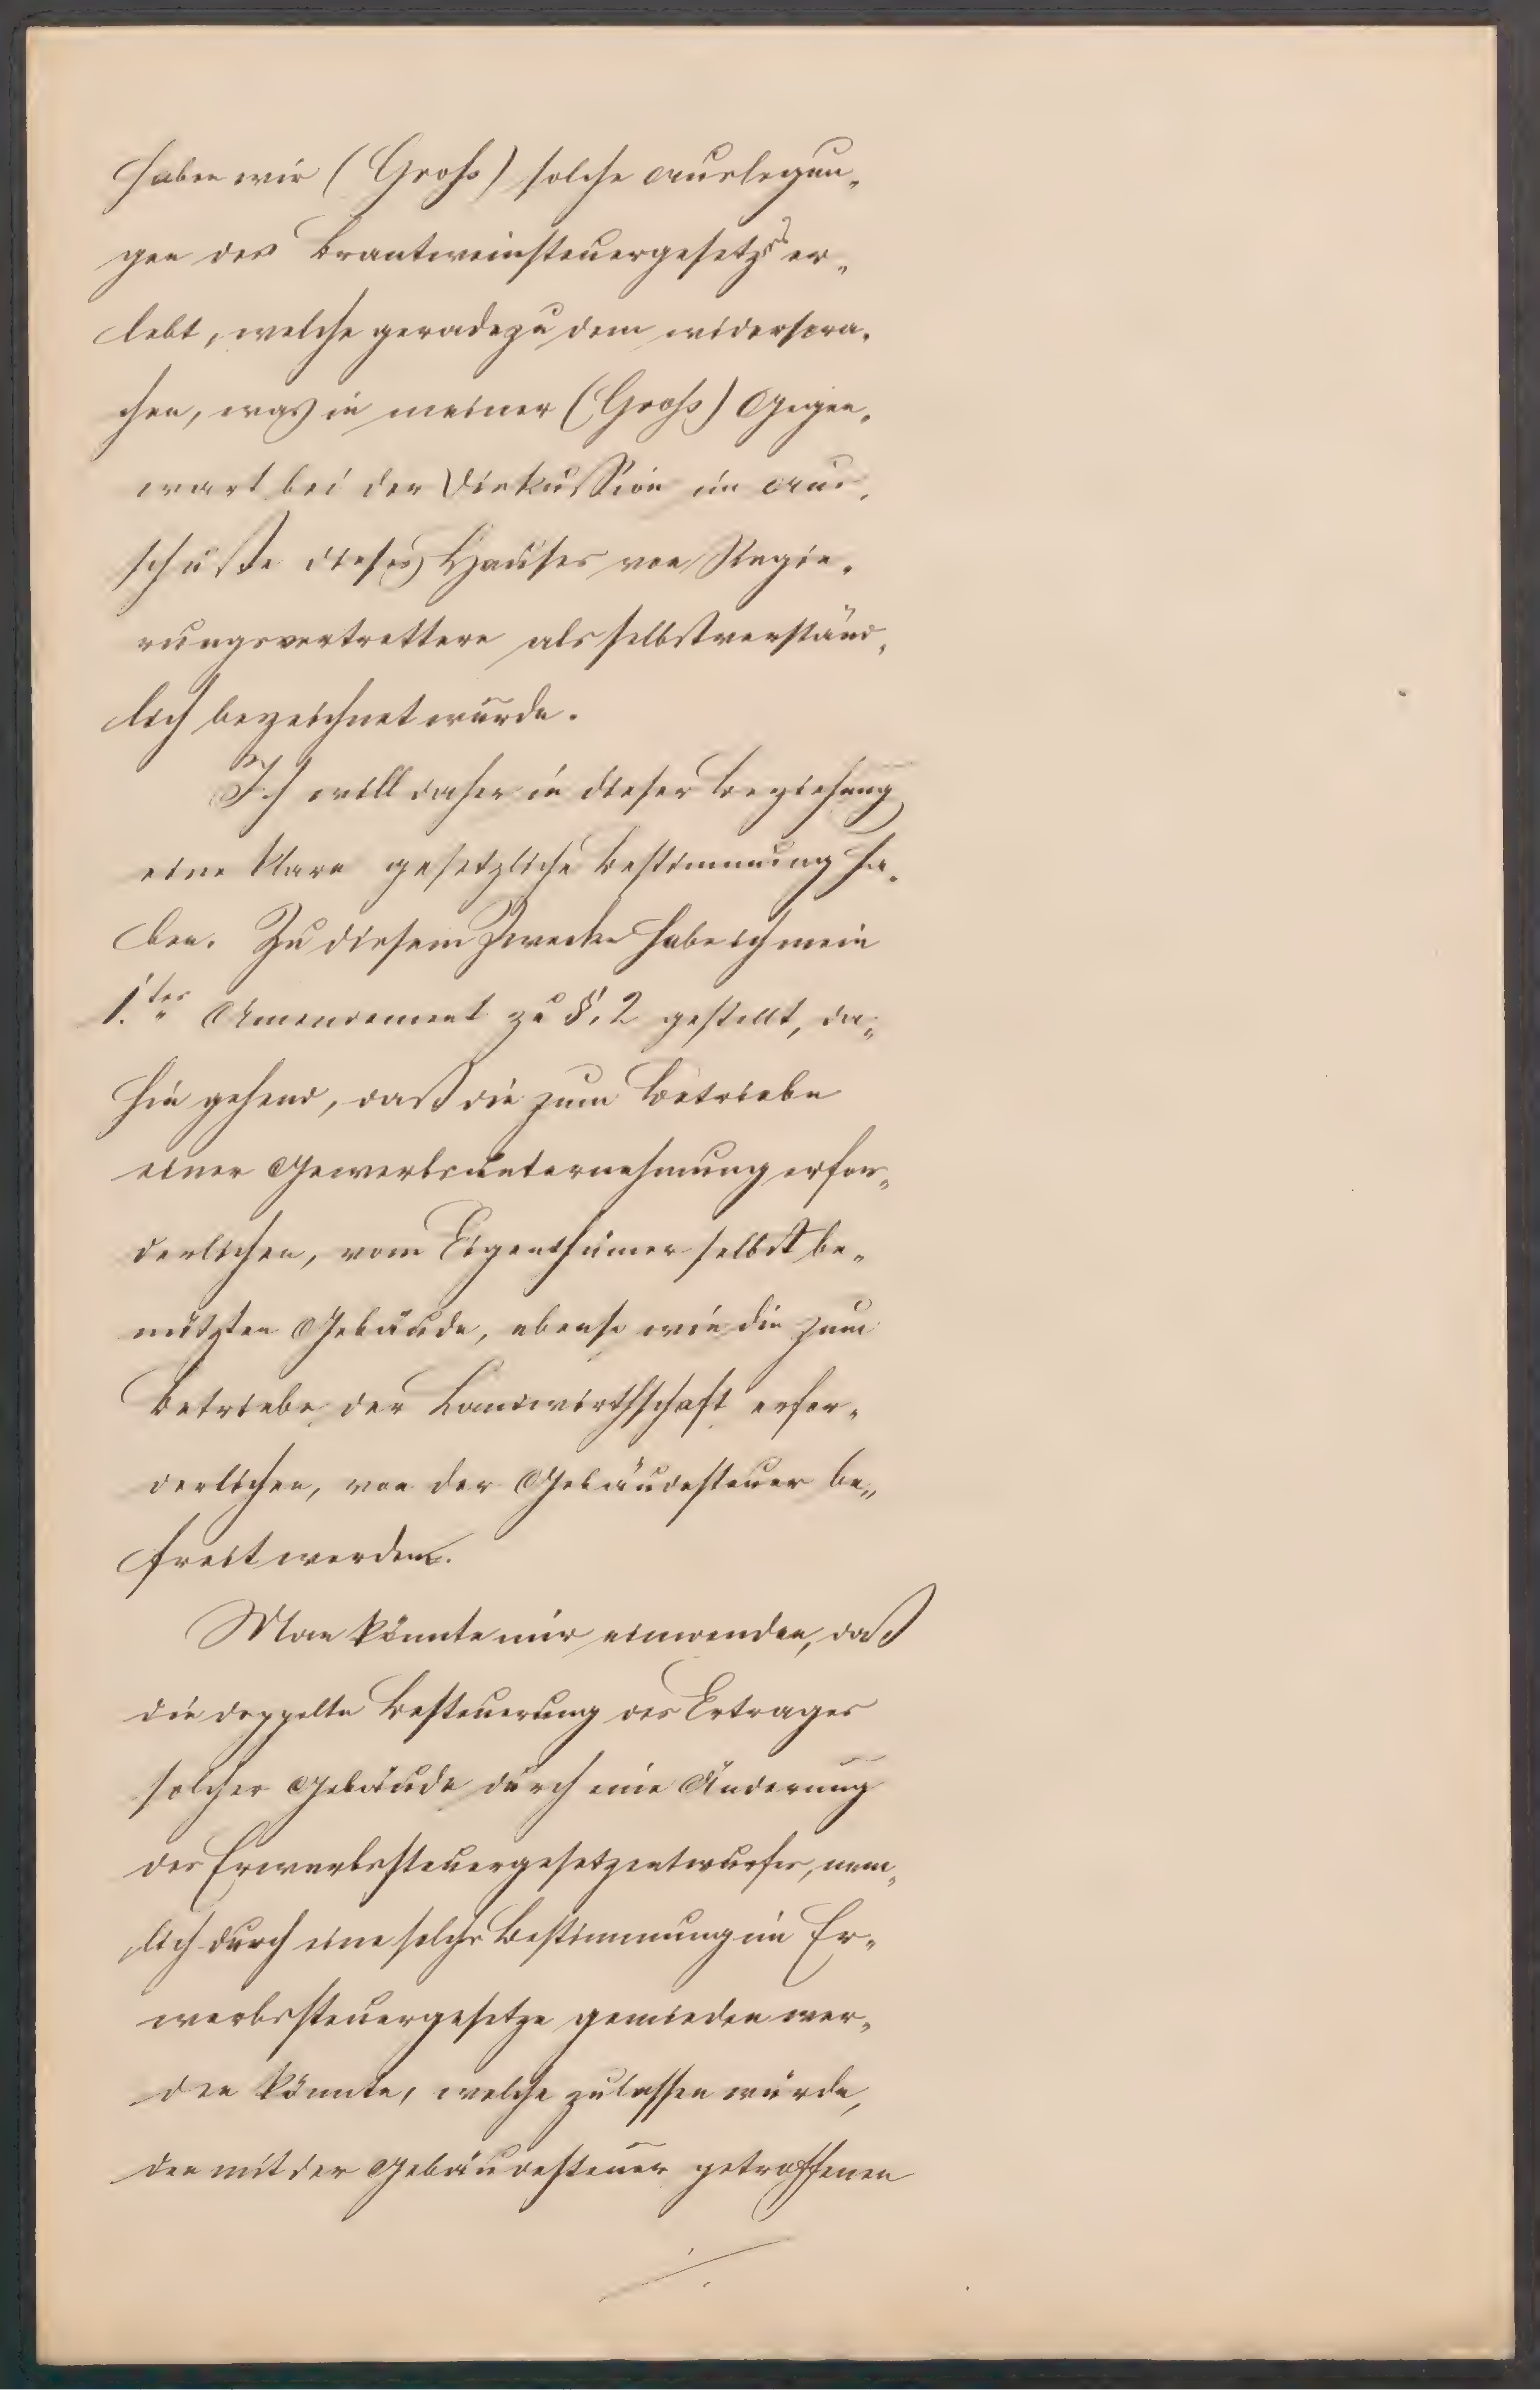 haben wir (Groß) solche Auslegun„
gen des Brantweinsteuergesetzes er„
lebt, welche geradezu dem widerspra„
chen, was in meiner (Groß) Gegen„
wart bei der Diskussion im Aus„
schuße dieses Hauses von Regie„
rungsvertrettern als selbstverständ„
lich bezeichnet wurde.
Ich will daher in dieser Beziehung
eine klare gesetzliche Bestimmung ha„
ben. Zu diesem Zwecke habe ich mein
1.tes Amendement zu §. 2 gestellt, da„
hin gehend, daß die zum Betriebe
einer Gewerbsunternehmung erfor„
derlichen, vom Eigenthümer selbst be„
nützten Gebäude, ebenso wie die zum
Betriebe der Landwirthschaft erfor„
derlichen, von der Gebäudesteuer be„
freit werden.
Man könnte mir einwenden, daß
die doppelte Besteuerung des Ertrages
solcher Gebäude durch eine Änderung
des Erwerbssteuergesetzentwurfes, nem„
lich durch eine solche Bestimmung im Er„
werbssteuergesetze gemieden wer„
den könnte, welche zulassen würde,
den mit der Gebäudesteuer getroffenen
./.